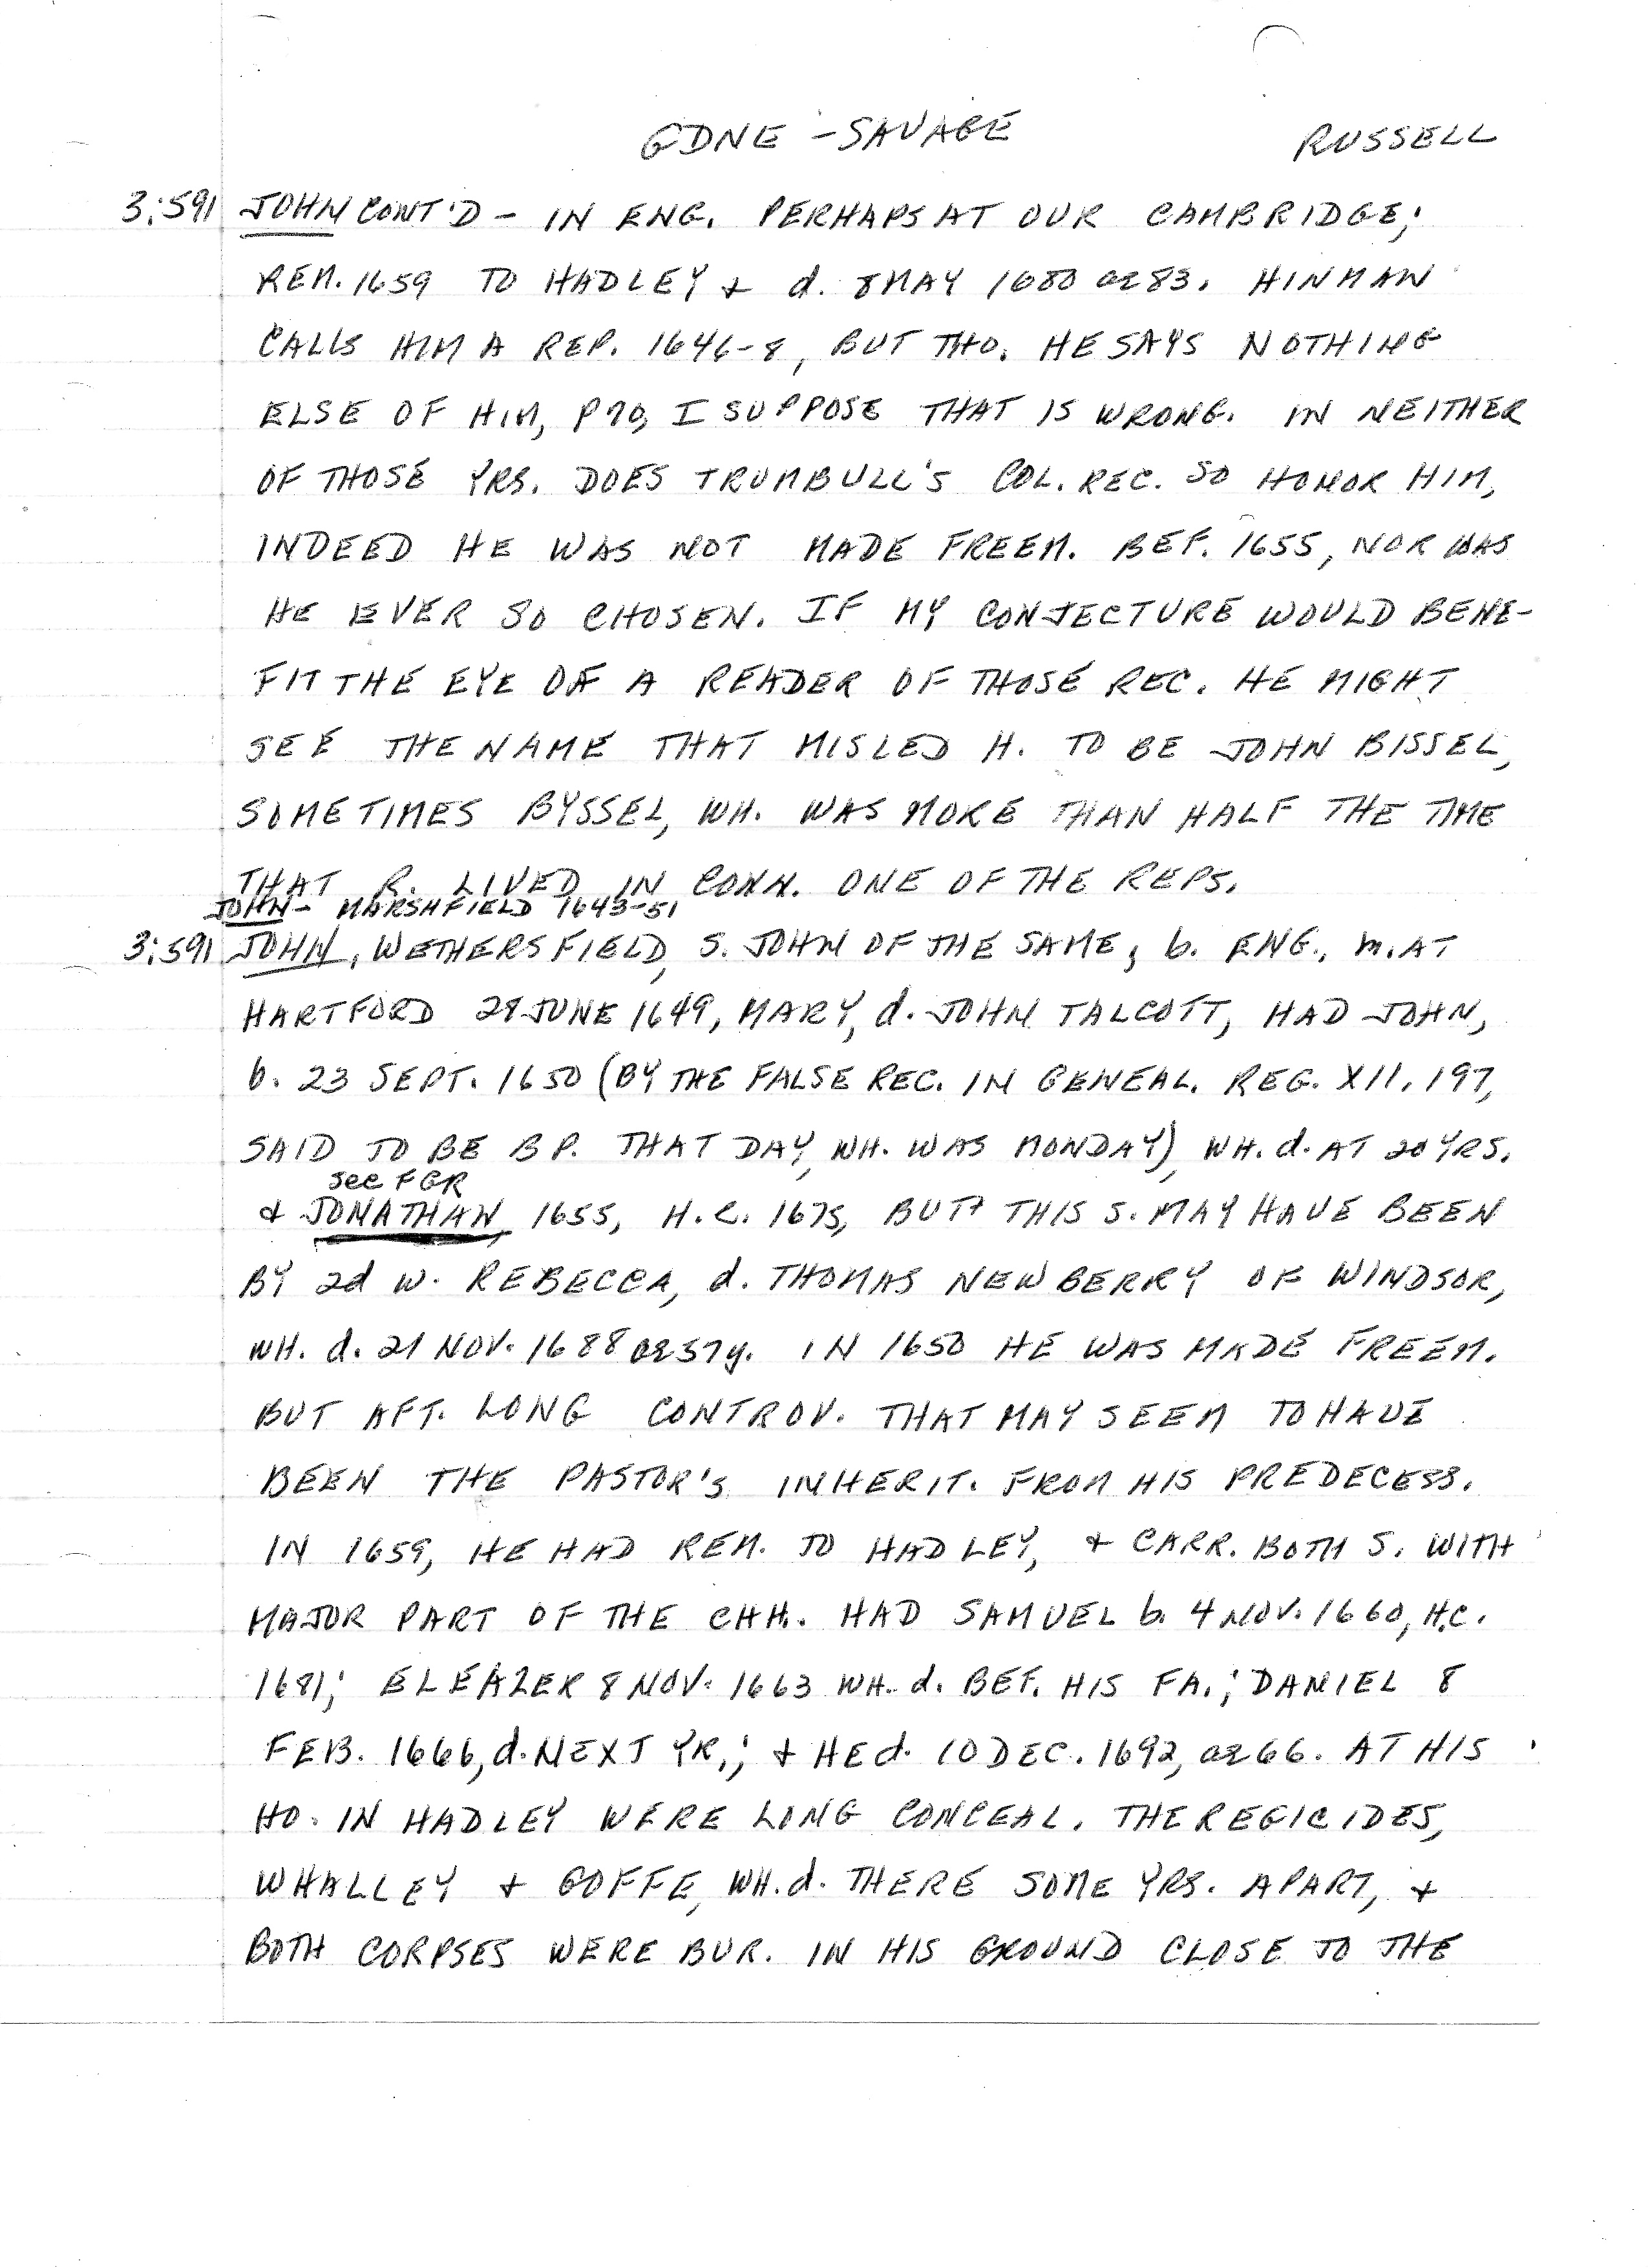 GDNE - SAVAGE RUSSELL
3:591 JOHN CONT'D - IN ENG. PERHAPS AT OUR CAMBRIDGE;
REM. 1659 TO HADLEY & d. 8 MAY 1680 ae 83. HINMAN
CALLS HIM A REP. 1646-8, BUT THO. HE SAYS NOTHING
ELSE OF HIM, P 70, I SUPPOSE THAT IS WRONG. IN NEITHER
OF THOSE YRS. DOES TRUMBULL'S COL. REC. SO HONOR HIM,
INDEED HE WAS NOT MADE FREEM. BEF. 1655, NOR WAS
HE EVER SO CHOSEN. IF MY CONJECTURE WOULD BENE-
FIT THE EYE OF A READER OF THOSE REC. HE MIGHT
SEE THE NAME THAT MISLED H. TO BE JOHN BISSEL,
SOMETIMES BYSSEL, WH. WAS MORE THAN HALF THE TIME
THAT R. LIVED IN CONN. ONE OF THE REPS.
JOHN - MARSHFIELD 1643-51
3:591 JOHN, WETHERSFIELD, S. JOHN OF THE SAME, b. ENG., m. AT
HARTFORD 28 JUNE 1649, MARY, d. JOHN TALCOTT, HAD JOHN,
b. 23 SEPT. 1650 (BY THE FALSE REC. IN GENEAL. REG. XII. 197,
SAID TO BE BP. THAT DAY, WH. WAS MONDAY), WH. d. AT 20 YRS.
see FGR
& JONATHAN, 1655, H.C. 1675, BUT THIS S. MAY HAVE BEEN
BY 2d W. REBECCA, d. THOMAS NEWBERRY OF WINDSOR,
WH. d. 21 NOV. 1688 ae 57y. IN 1650 HE WAS MADE FREEM.
BUT AFT. LONG CONTROV. THAT MAY SEEM TO HAVE
BEEN THE PASTOR'S INHERIT. FROM HIS PREDECESS.
IN 1659, HE HAD REM. TO HADLEY, & CARR. BOTH S. WITH
MAJOR PART OF THE CHH. HAD SAMUEL b. 4 NOV. 1660, H.C.
1681; ELEAZER 8 NOV. 1663 WH. d. BEF. HIS FA.; DANIEL 8
FEB. 1666, d. NEXT YR.; & HE d. 10 DEC. 1692, ae 66. AT HIS
HO. IN HADLEY WERE LONG CONCEAL. THE REGICIDES,
WHALLEY & GOFFE, WH. d. THERE SOME YRS. APART, &
BOTH CORPSES WERE BUR. IN HIS GROUND CLOSE TO THE